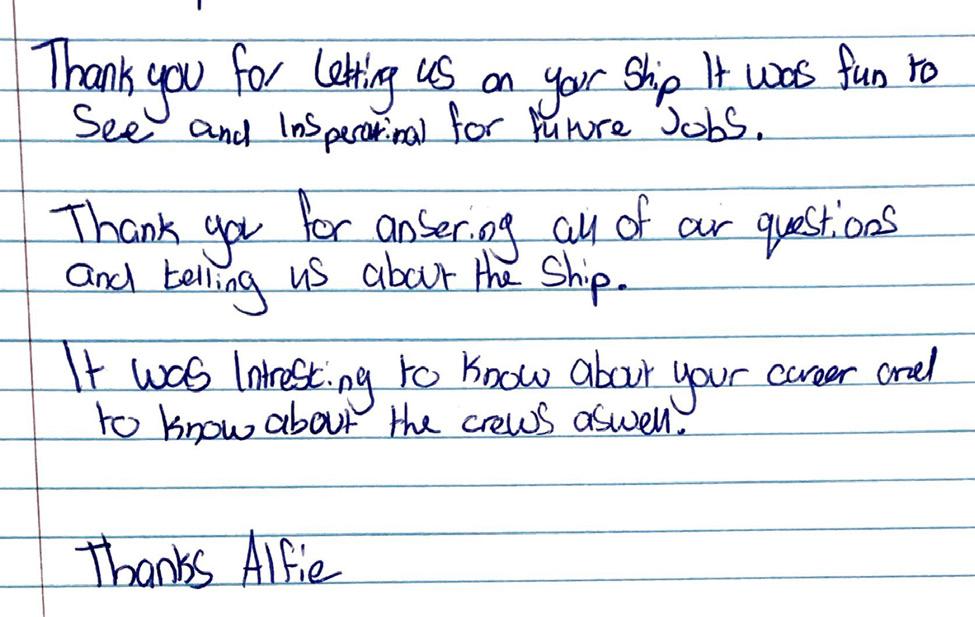 Thank you for letting us on your Ship It was fun to
See and Insperatinal for future Jobs.
Thank you for ansering all of our questions
and telling us about the Ship.
It was Intresting to know about your career and
to know about the crews aswell.
Thanks Alfie